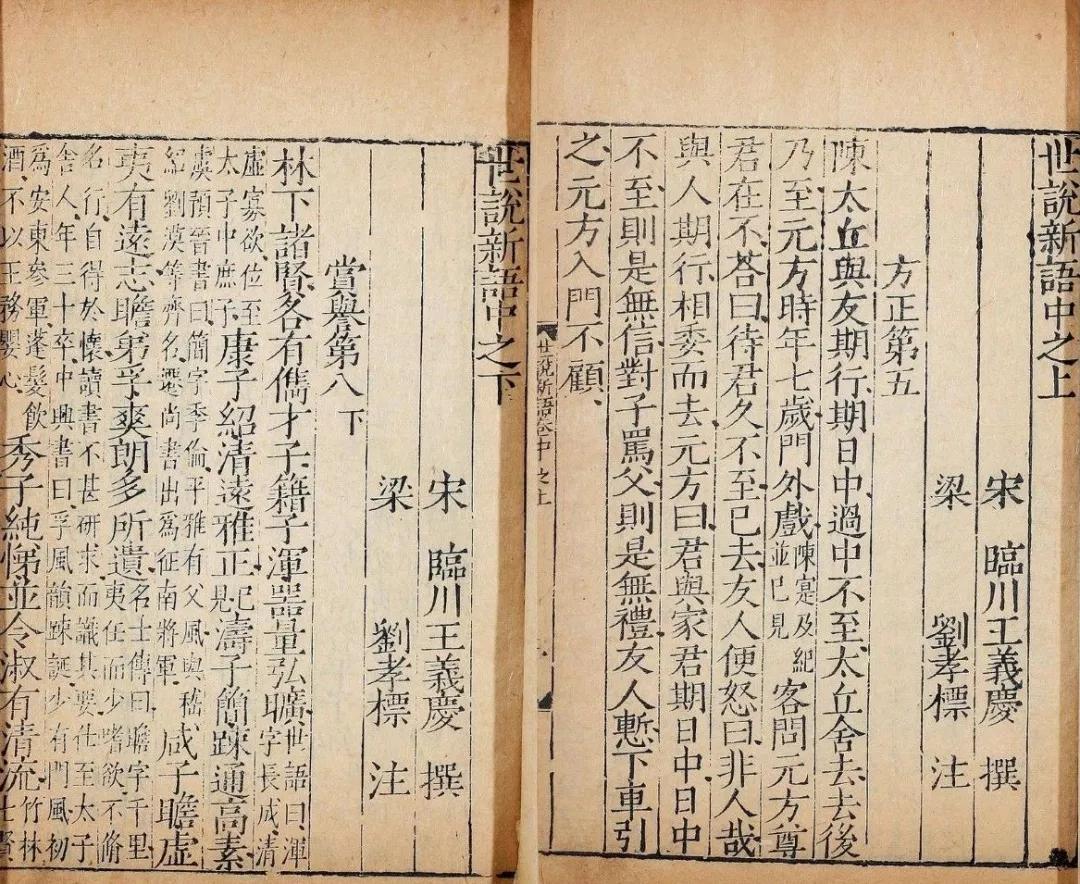 世說新語中之上
宋 臨川王義慶 撰
梁 劉孝標 注
方正第五
陳太丘與友期行期日中過中不至太丘舍去去後
乃至元方時年七歲門外戲陳寔及紀並已見客問元方尊
君在不荅曰待君久不至已去友人便怒曰非人哉
與人期行相委而去元方曰君與家君期日中日中
不至則是無信對子罵父則是無禮友人慙下車引
之元方入門不顧
世說新語卷中之上
世說新語中之下
宋 臨川王義慶 撰
梁 劉孝標 注
賞譽第八下
林下諸賢各有儁才子籍子渾器量弘曠世語曰渾字長成清
虛寡欲位至太子中庶子康子紹清遠雅正已見濤子簡疎通高素
虞預晉書曰簡字季倫平雅有父風與嵇紹劉漠等齊名遷尚書出為征南將軍咸子瞻虛
夷有遠志瞻弟孚爽朗多所遺名士傳曰瞻字千里夷任而少嗜欲不脩
名行自得於懷讀書不甚研求而識其要仕至太子舍人年三十卒中興書曰孚風韻踈誕少有門風初
為安東參軍蓬髮飲酒不以王務嬰心秀子純悌並令淑有清流竹林七賢